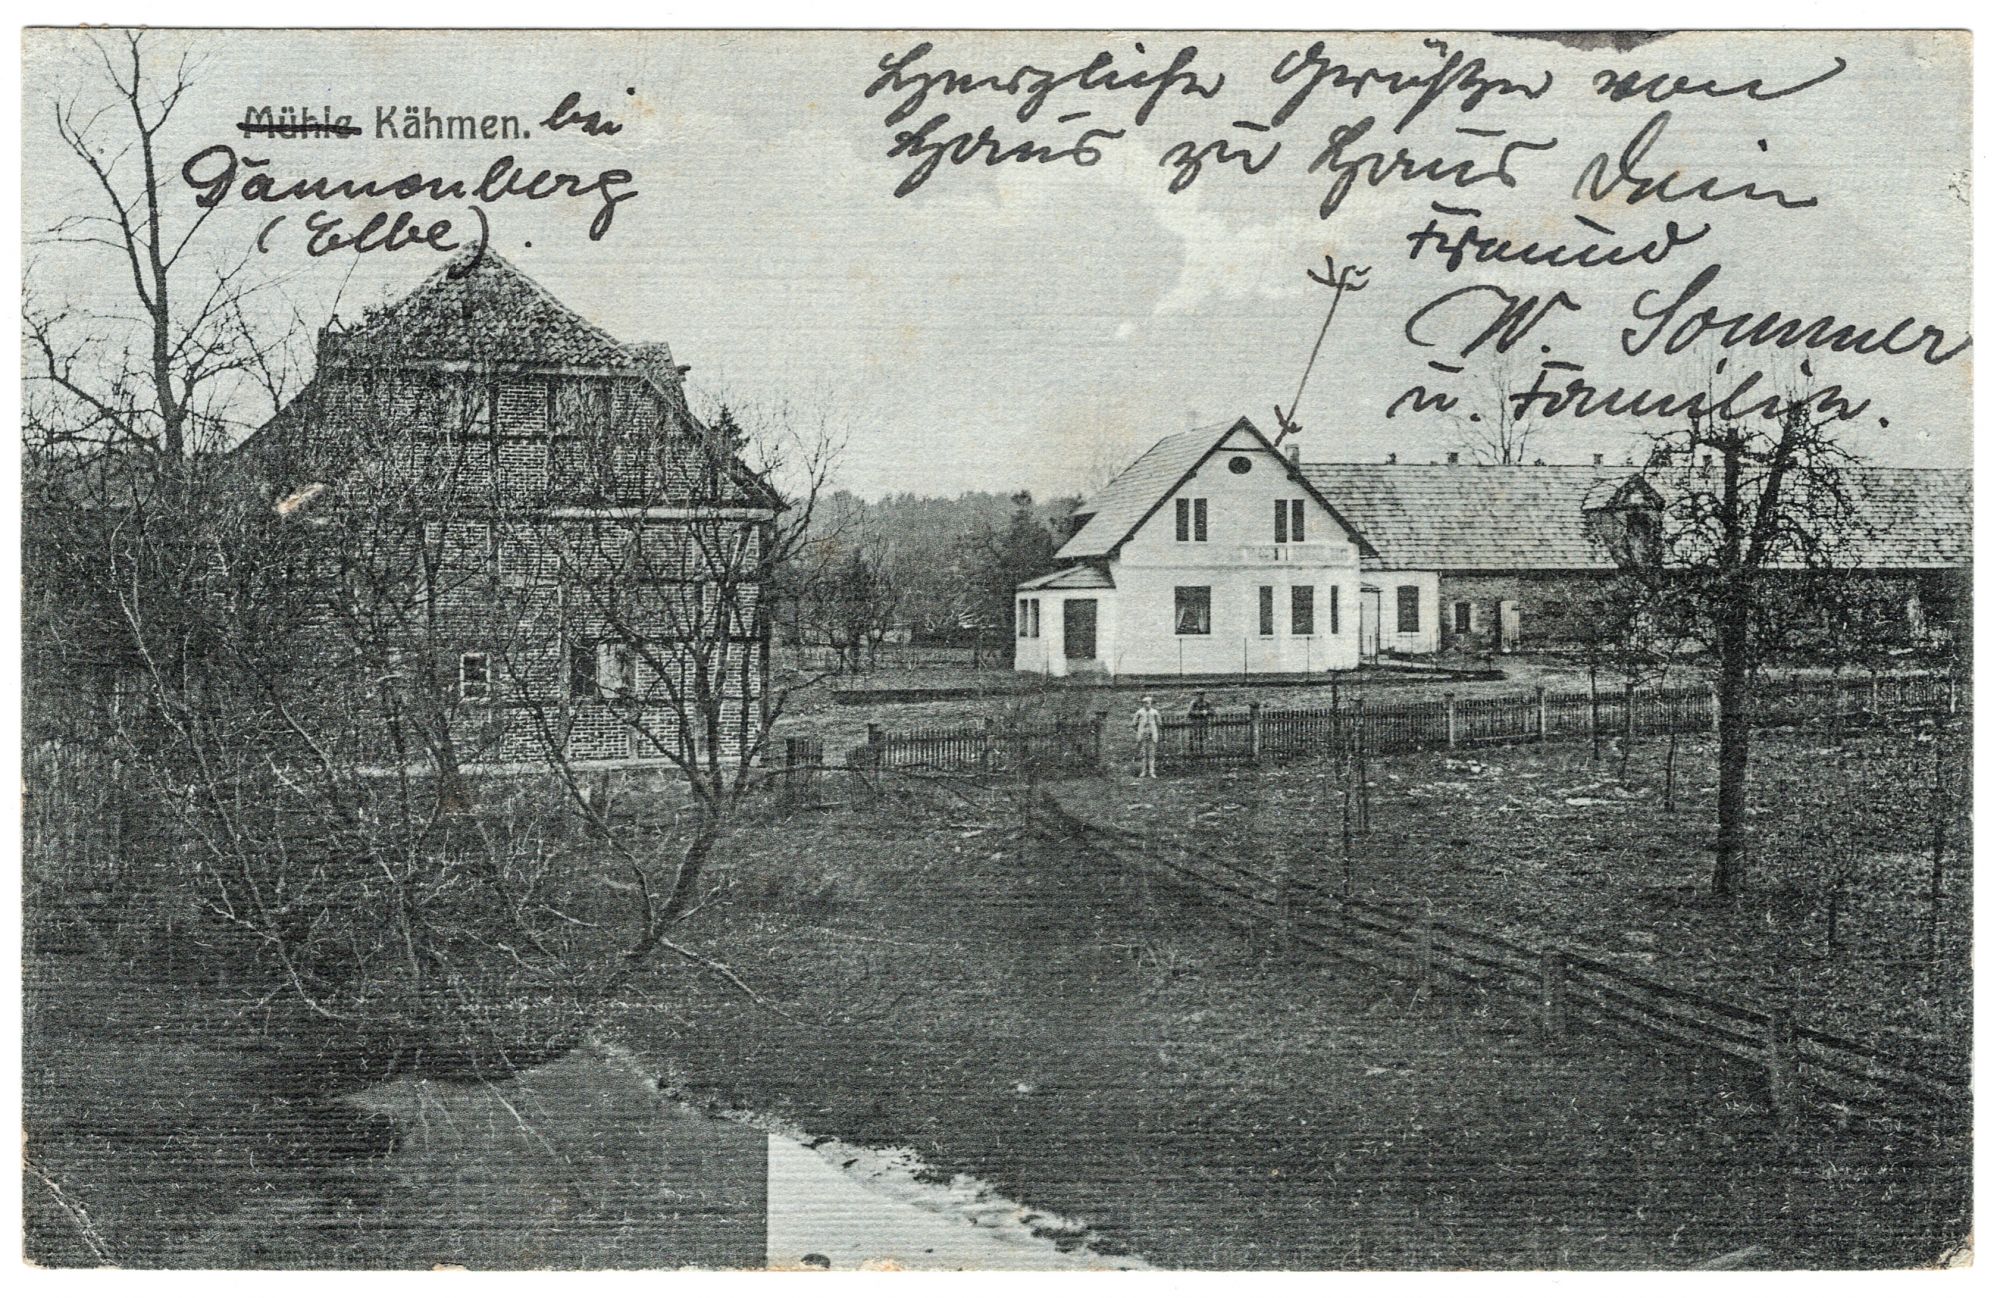 Mühle Kähmen. bei
Dannenberg
(Elbe).
Herzliche Grüße von
Haus zu Haus Dein
Freund
W. Sommer
u. Familie.